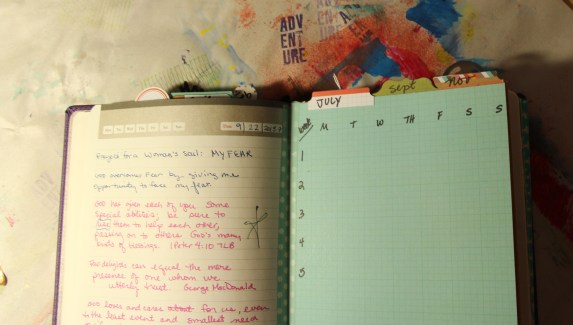 ADV
ENT
URE
JULY
Sept
Nov
9 22
Prayers for a Woman's Soul: MY FEAR
God overcomes Fear by giving me
opportunity to face my fear.
God has given each of you some
special abilities; be sure to
use them to help each other,
passing on to others God's many
kinds of blessings. 1 Peter 4:10 TLB
No delights can equal the mere
presence of one whom we
utterly trust. George MacDonald
God Loves and cares about for us, even
to the least event and smallest need
week M T W TH F S S
1
2
3
4
5